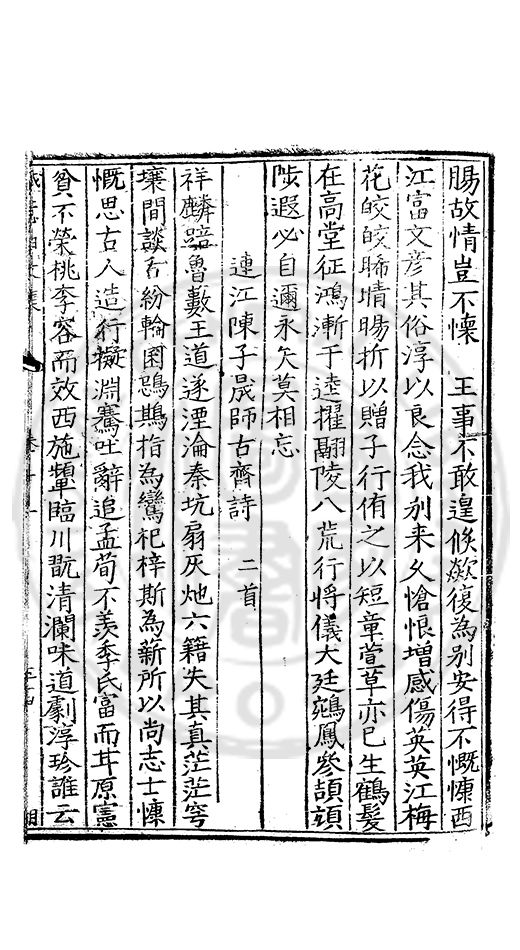 腸故情豈不悽　王事不敢遑倏歘復為別安得不慨悽西
江富文彦其俗淳以良念我别来久愴恨增感傷英英江梅
花皎皎晞晴暘折以贈子行侑之以短章萱草亦已生鶴髮
在高堂征鴻漸于逵擢翮陵八荒行将儀大廷鵷鳳參頡頏
陟遐必自邇永矢莫相忘
連江陳子晟師古齋詩　二首
祥麟踣魯藪王道遂湮淪秦坑扇灰灺六籍失其真茫茫穹
壤間談舌紛輪囷鴟鷍指為鸞杞梓斯為薪所以尚志士慄
慨思古人造行擬淵騫吐辭追孟荀不羡季氏富而甘原憲
貧不榮桃李容而效西施顰臨川既清瀾味道劇淳珍誰云
卷十一